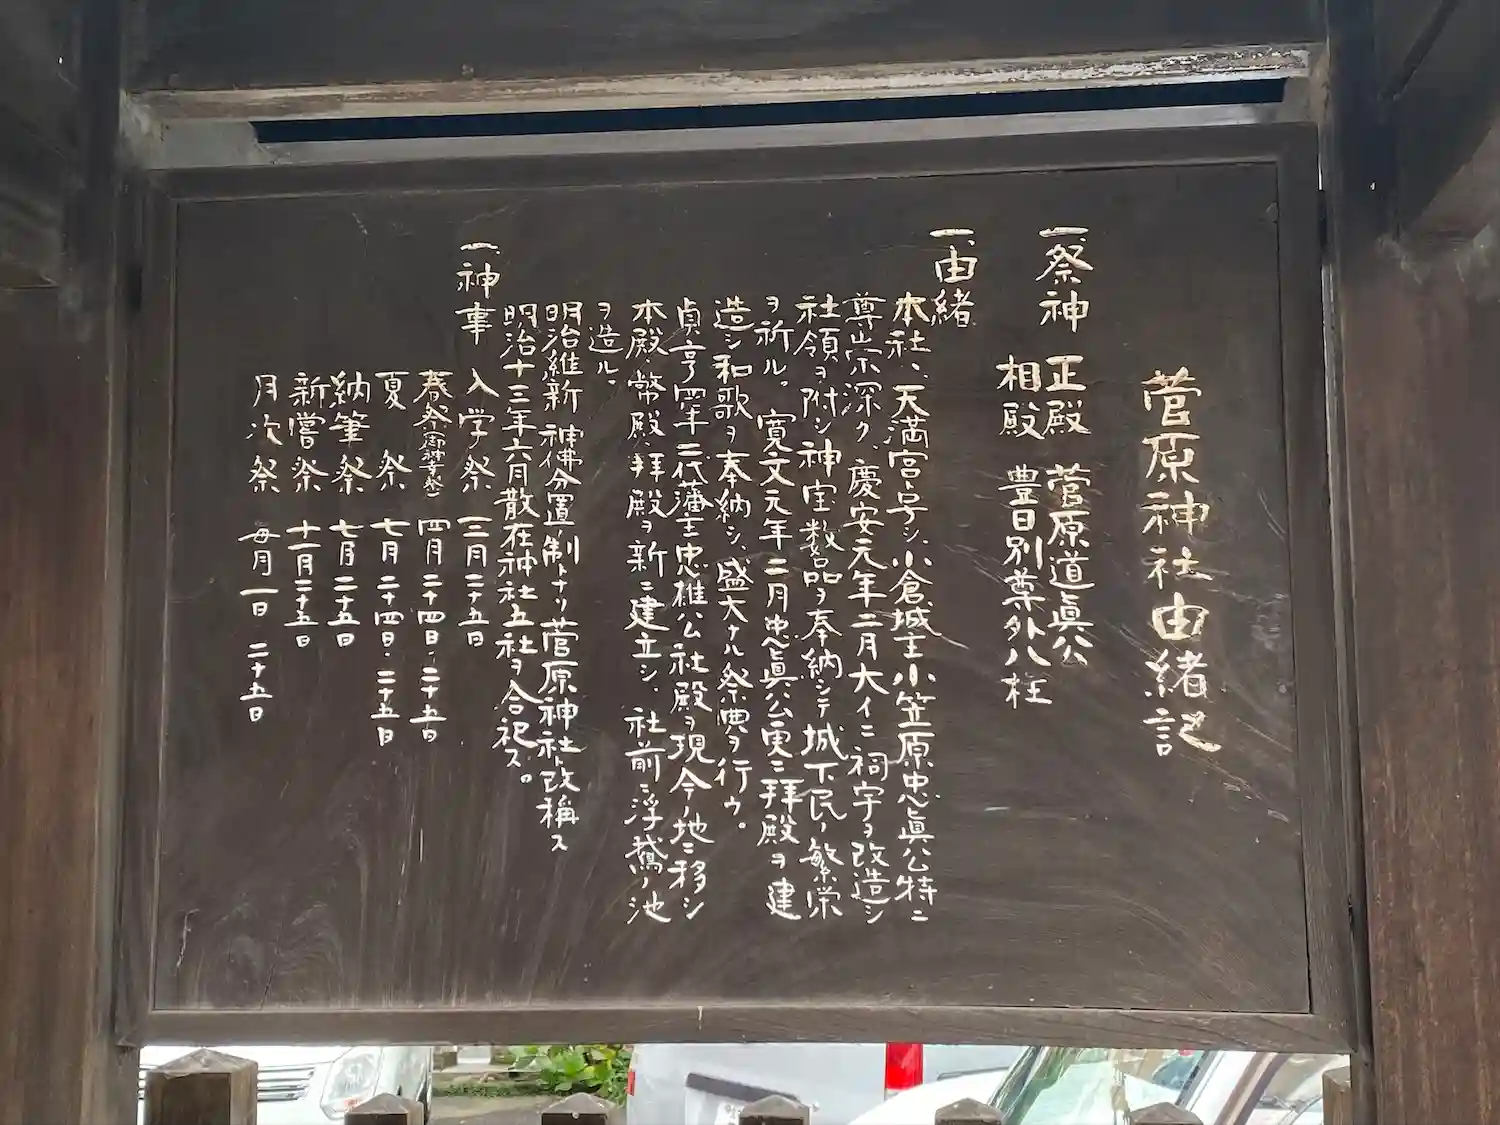 菅原神社由緒記
一、祭神 正殿 菅原道眞公
相殿 豊日別尊外八柱
一、由緒
本社ハ、天満宮ト号シ、小倉城主小笠原忠眞公特ニ
尊崇深ク、慶安元年二月大イニ祠宇ヲ改造シ
社領ヲ附シ神宝数品ヲ奉納シテ城下民ノ繁栄
ヲ祈ル。寛文元年二月忠眞公更ニ拝殿ヲ建
造シ和歌ヲ奉納シ、盛大ナル祭典ヲ行ウ。
貞亨四年二代藩主忠雄公社殿ヲ現今ノ地ニ移シ
本殿、幣殿、拝殿ヲ新ニ建立シ、社前ニ浮鵞ノ池
ヲ造ル。
明治維新 神佛分置ノ制トナリ菅原神社ト改稱ス
明治十三年六月散在神社五社ヲ合祀ス。
一、神事 入学祭 三月二十五日
春祭(御神幸祭) 四月二十四日・二十五日
夏祭 七月二十四日・二十五日
納筆祭 七月二十五日
新嘗祭 十一月二十五日
月次祭 毎月一日 二十五日